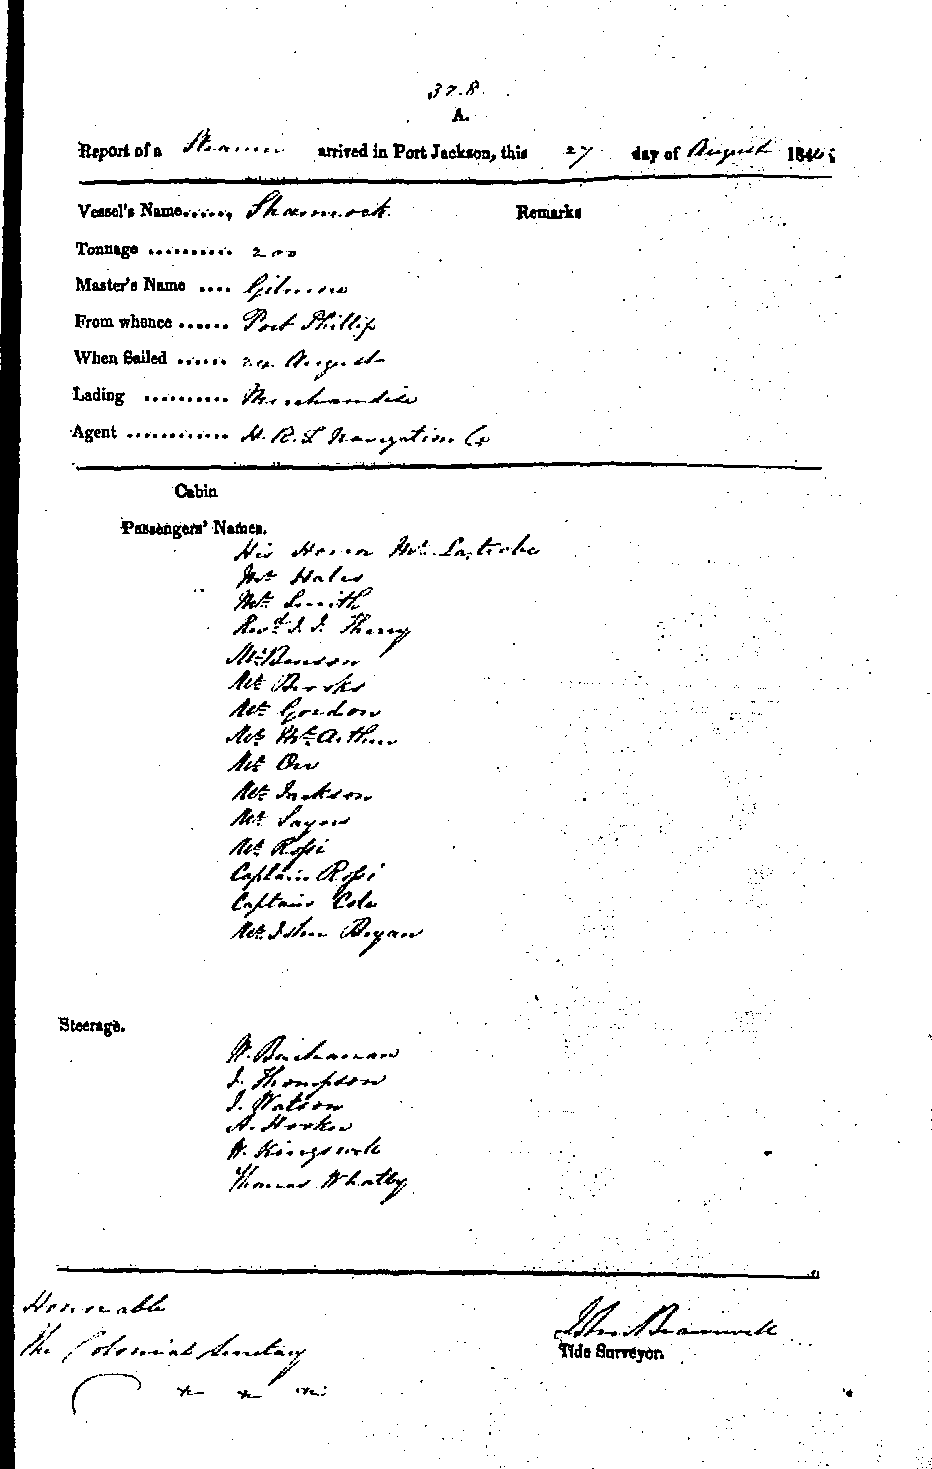 378.
A.
Report of a Steamer arrived in Port Jackson, this 27 day of August 184
Vessel's Name...... Shamrock Remarks
Tonnage .......... 200
Master's Name .... Gilmore
From whence ...... Port Phillip
When Sailed ...... 24 August
Lading .......... Merchandise
Agent ............ H. R. S Navigation Co
Cabin
Passengers' Names.
His Honor Mr. Latrobe
Mr. Hales
Mr. Smith
Revd. J. J. Therry
Mr. Benson
Mr. Brooks
Mr. Gordon
Mr. McArthur
Mr. Orr
Mr. Jackson
Mr. Sayers
Mr. Rossi
Captain Rossi
Captain Cole
Mr. John Bryan
Steerage.
W. Buchanan
J. Thompson
J. Watson
A. Hooker
W. Kingswell
Thomas Whatley
Honorable
The Colonial Secretary
John Bramwell
Tide Surveyor.